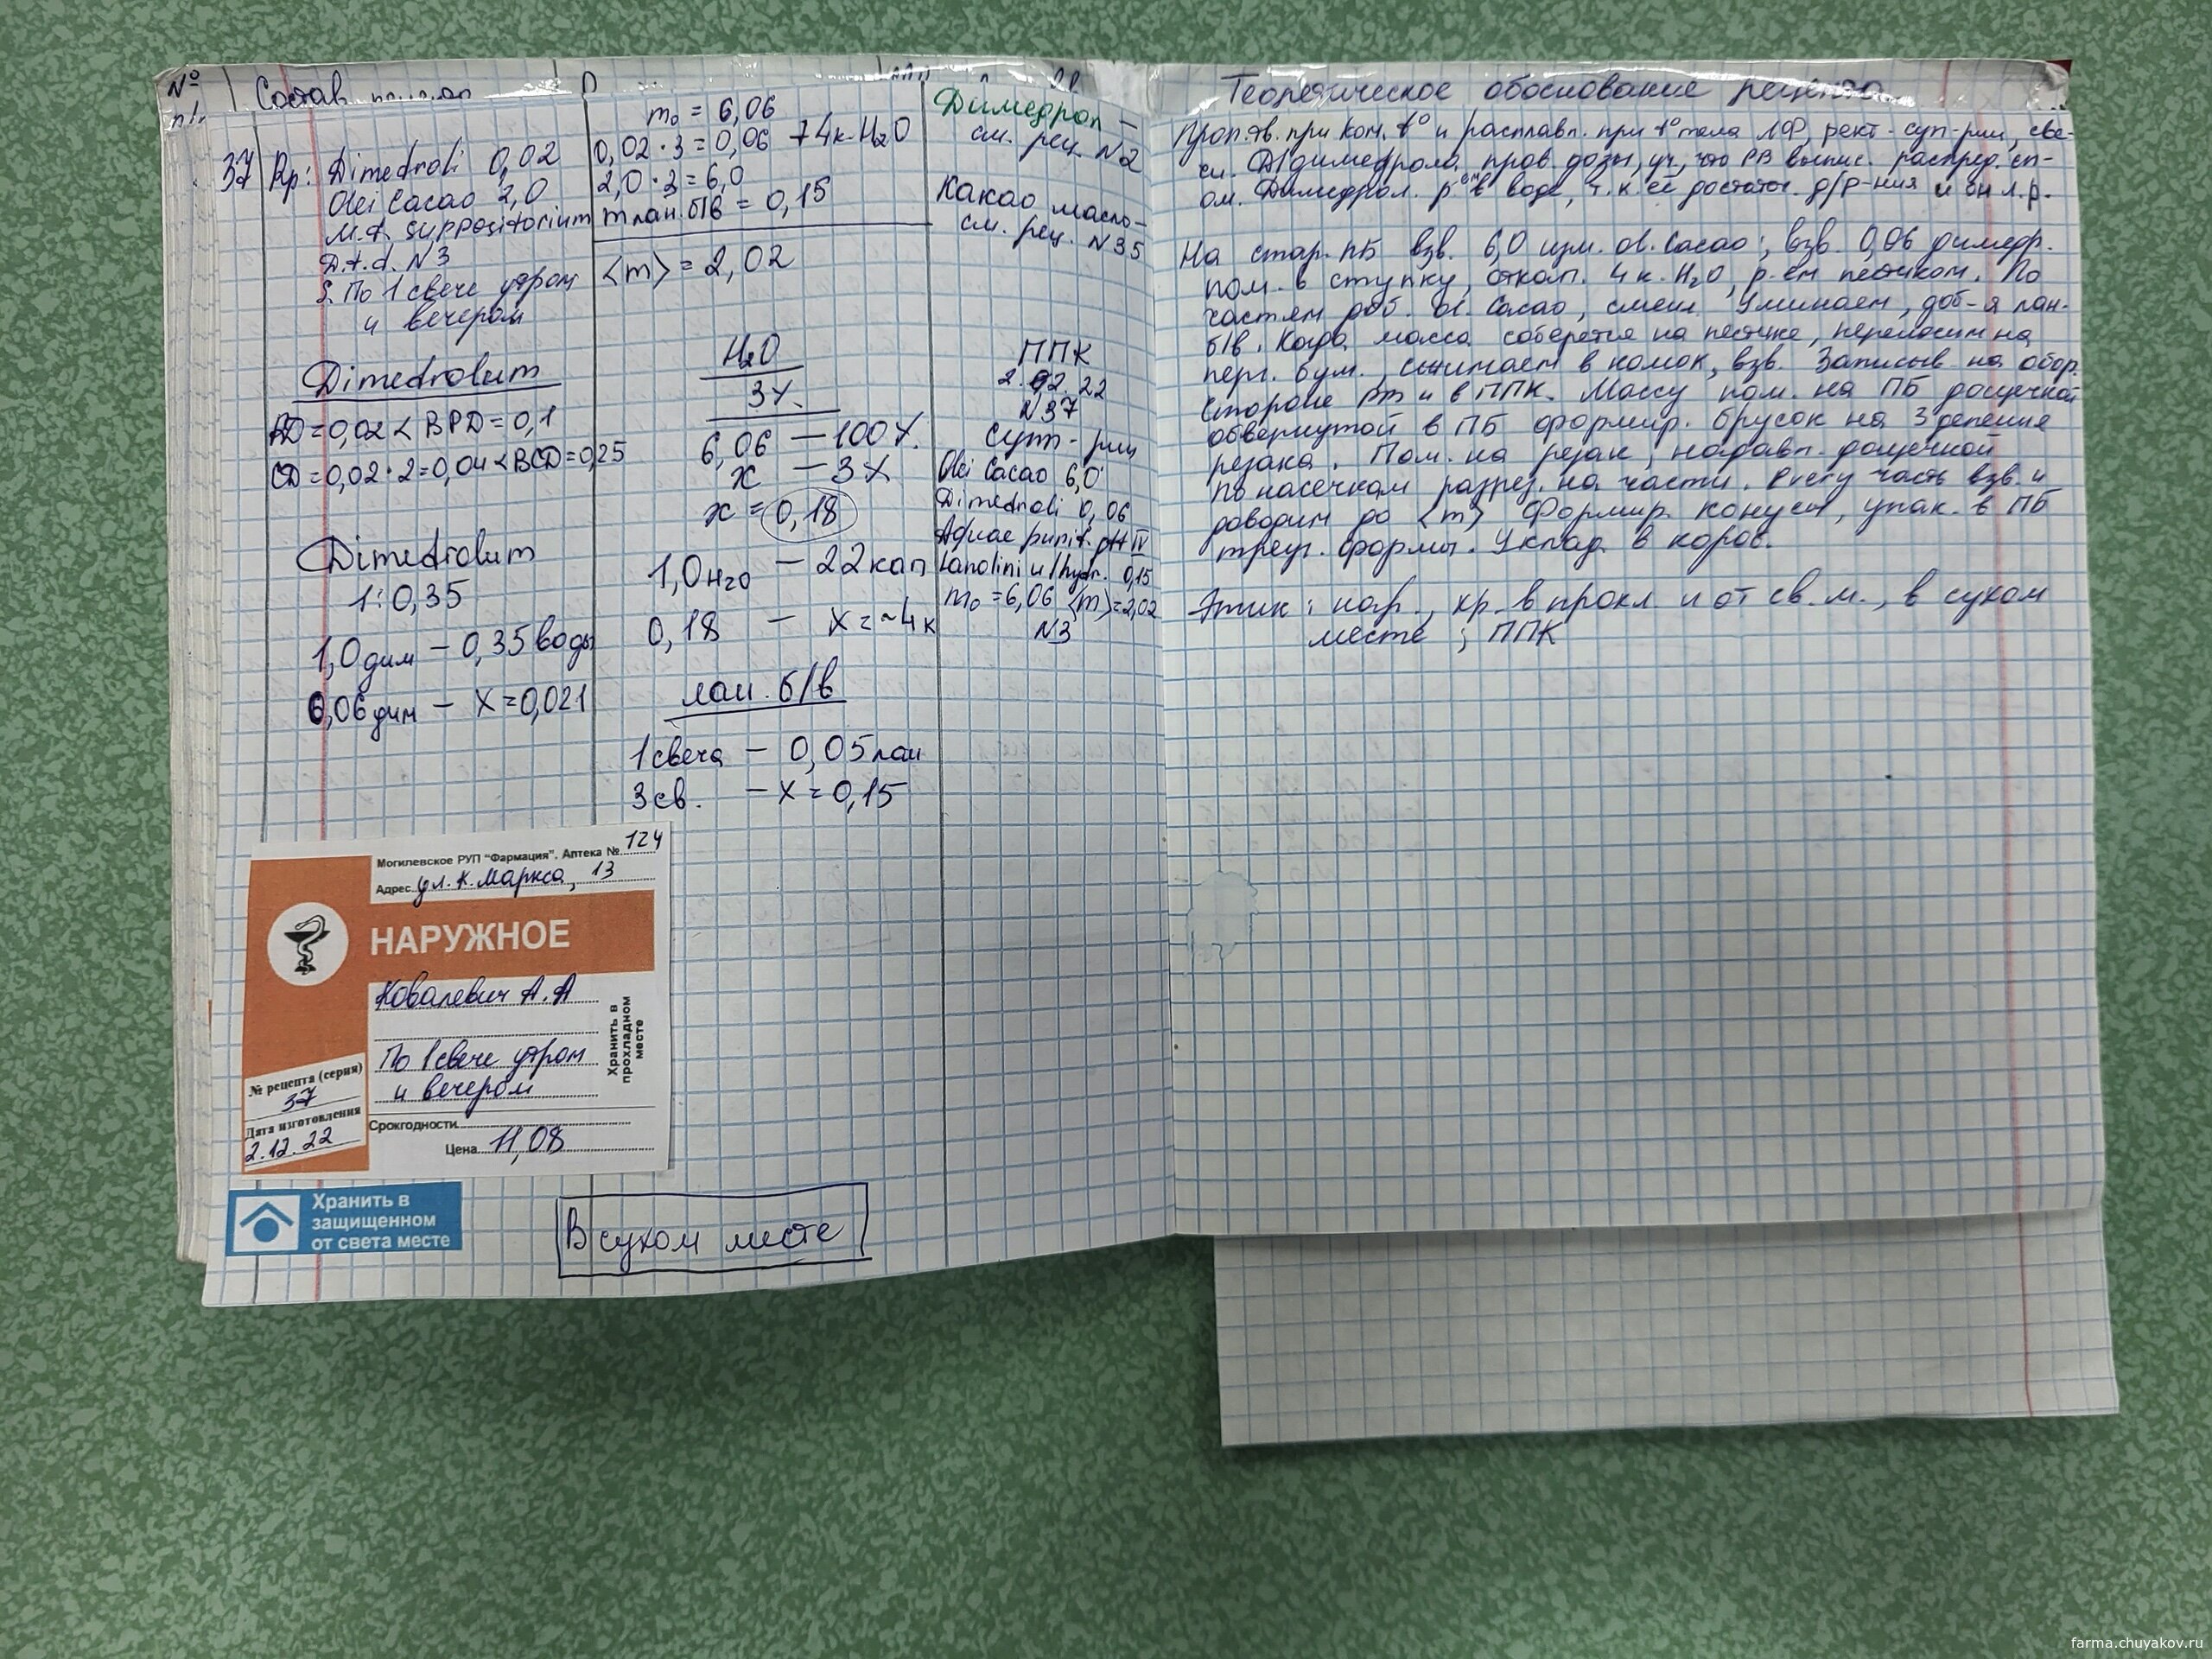 №
п/.
Состав
37 Rp: Dimedroli 0,02
Olei Cacao 2,0
M.f. suppositorium
D.t.d. N3
S. По 1 свече утром
и вечером
Dimedrolum
РД=0,02 < ВРД=0,1
СД=0,02·2=0,04<ВСД=0,25
Dimedrolum
1:0,35
1,0 дим – 0,35 воды
0,06 дим – X=0,021
m₀ = 6,06
0,02·3=0,06 +4к.H₂O
2,0·3=6,0
m лан.б/в = 0,15
⟨m⟩ = 2,02
H₂O
3%
6,06 – 100%
x – 3%
x = 0,18
1,0 H₂O – 22 кап
0,18 – X=~4к
лан. б/в
1 свеча – 0,05 лан
3 св. – X=0,15
Димедрол –
см. рец. N2
Какао масло-
см. рец. N35
ППК
2. 02. 22
N37
Супп-рии
Olei Cacao 6,0
Dimedroli 0,06
Aquae purif. gtt IV
Lanolini u/hydr. 0,15
m₀=6,06 ⟨m⟩=2,02
N3
Могилевское РУП "Фармация". Аптека № 124
Адрес ул. К. Маркса, 13
НАРУЖНОЕ
Ковалевич А.А
По 1 свече утром
и вечером
Хранить в
прохладном
месте
№ рецепта (серия)
37
Дата изготовления
2.12.22
Срок годности
Цена 11,08
Хранить в
защищенном
от света месте
В сухом месте
Теоретическое обоснование рецепта
Проп. тв. при ком. t° и расплавл. при t° тела ЛФ, рект. суп-рии, све-
чи. Д/димедрола пров. дозы, уч, что РВ выпис. распред. сп-
ом. Димедрол р-ем в воде, т.к. её достаточ. д/р-ния и он л.р.
На стар. ПБ взв. 6,0 изм. ol. Cacao; взв. 0,06 димедр.
пом. в ступку, откап. 4 к. H₂O, р-ем пестиком. По
частям доб. ol. Cacao, смеш. Уминаем, доб-я лан.
б/в. Когда масса соберется на пестике, переносим на
перг. бум., сжимаем в комок, взв. Записыв на обор.
стороне Рт и в ППК. Массу пом. на ПБ дощечкой
обвернутой в ПБ формир. брусок на 3 деления
резака. Пом. на резак, надавл. дощечкой
по насечкам разрез. на части. Кажду часть взв. и
доводим до ⟨m⟩ Формир. конусы, упак. в ПБ
треуг. формы. Уклад. в короб.
Этик: нар., хр. в прохл. и от св. м., в сухом
месте; ППК
farma.chuyakov.ru